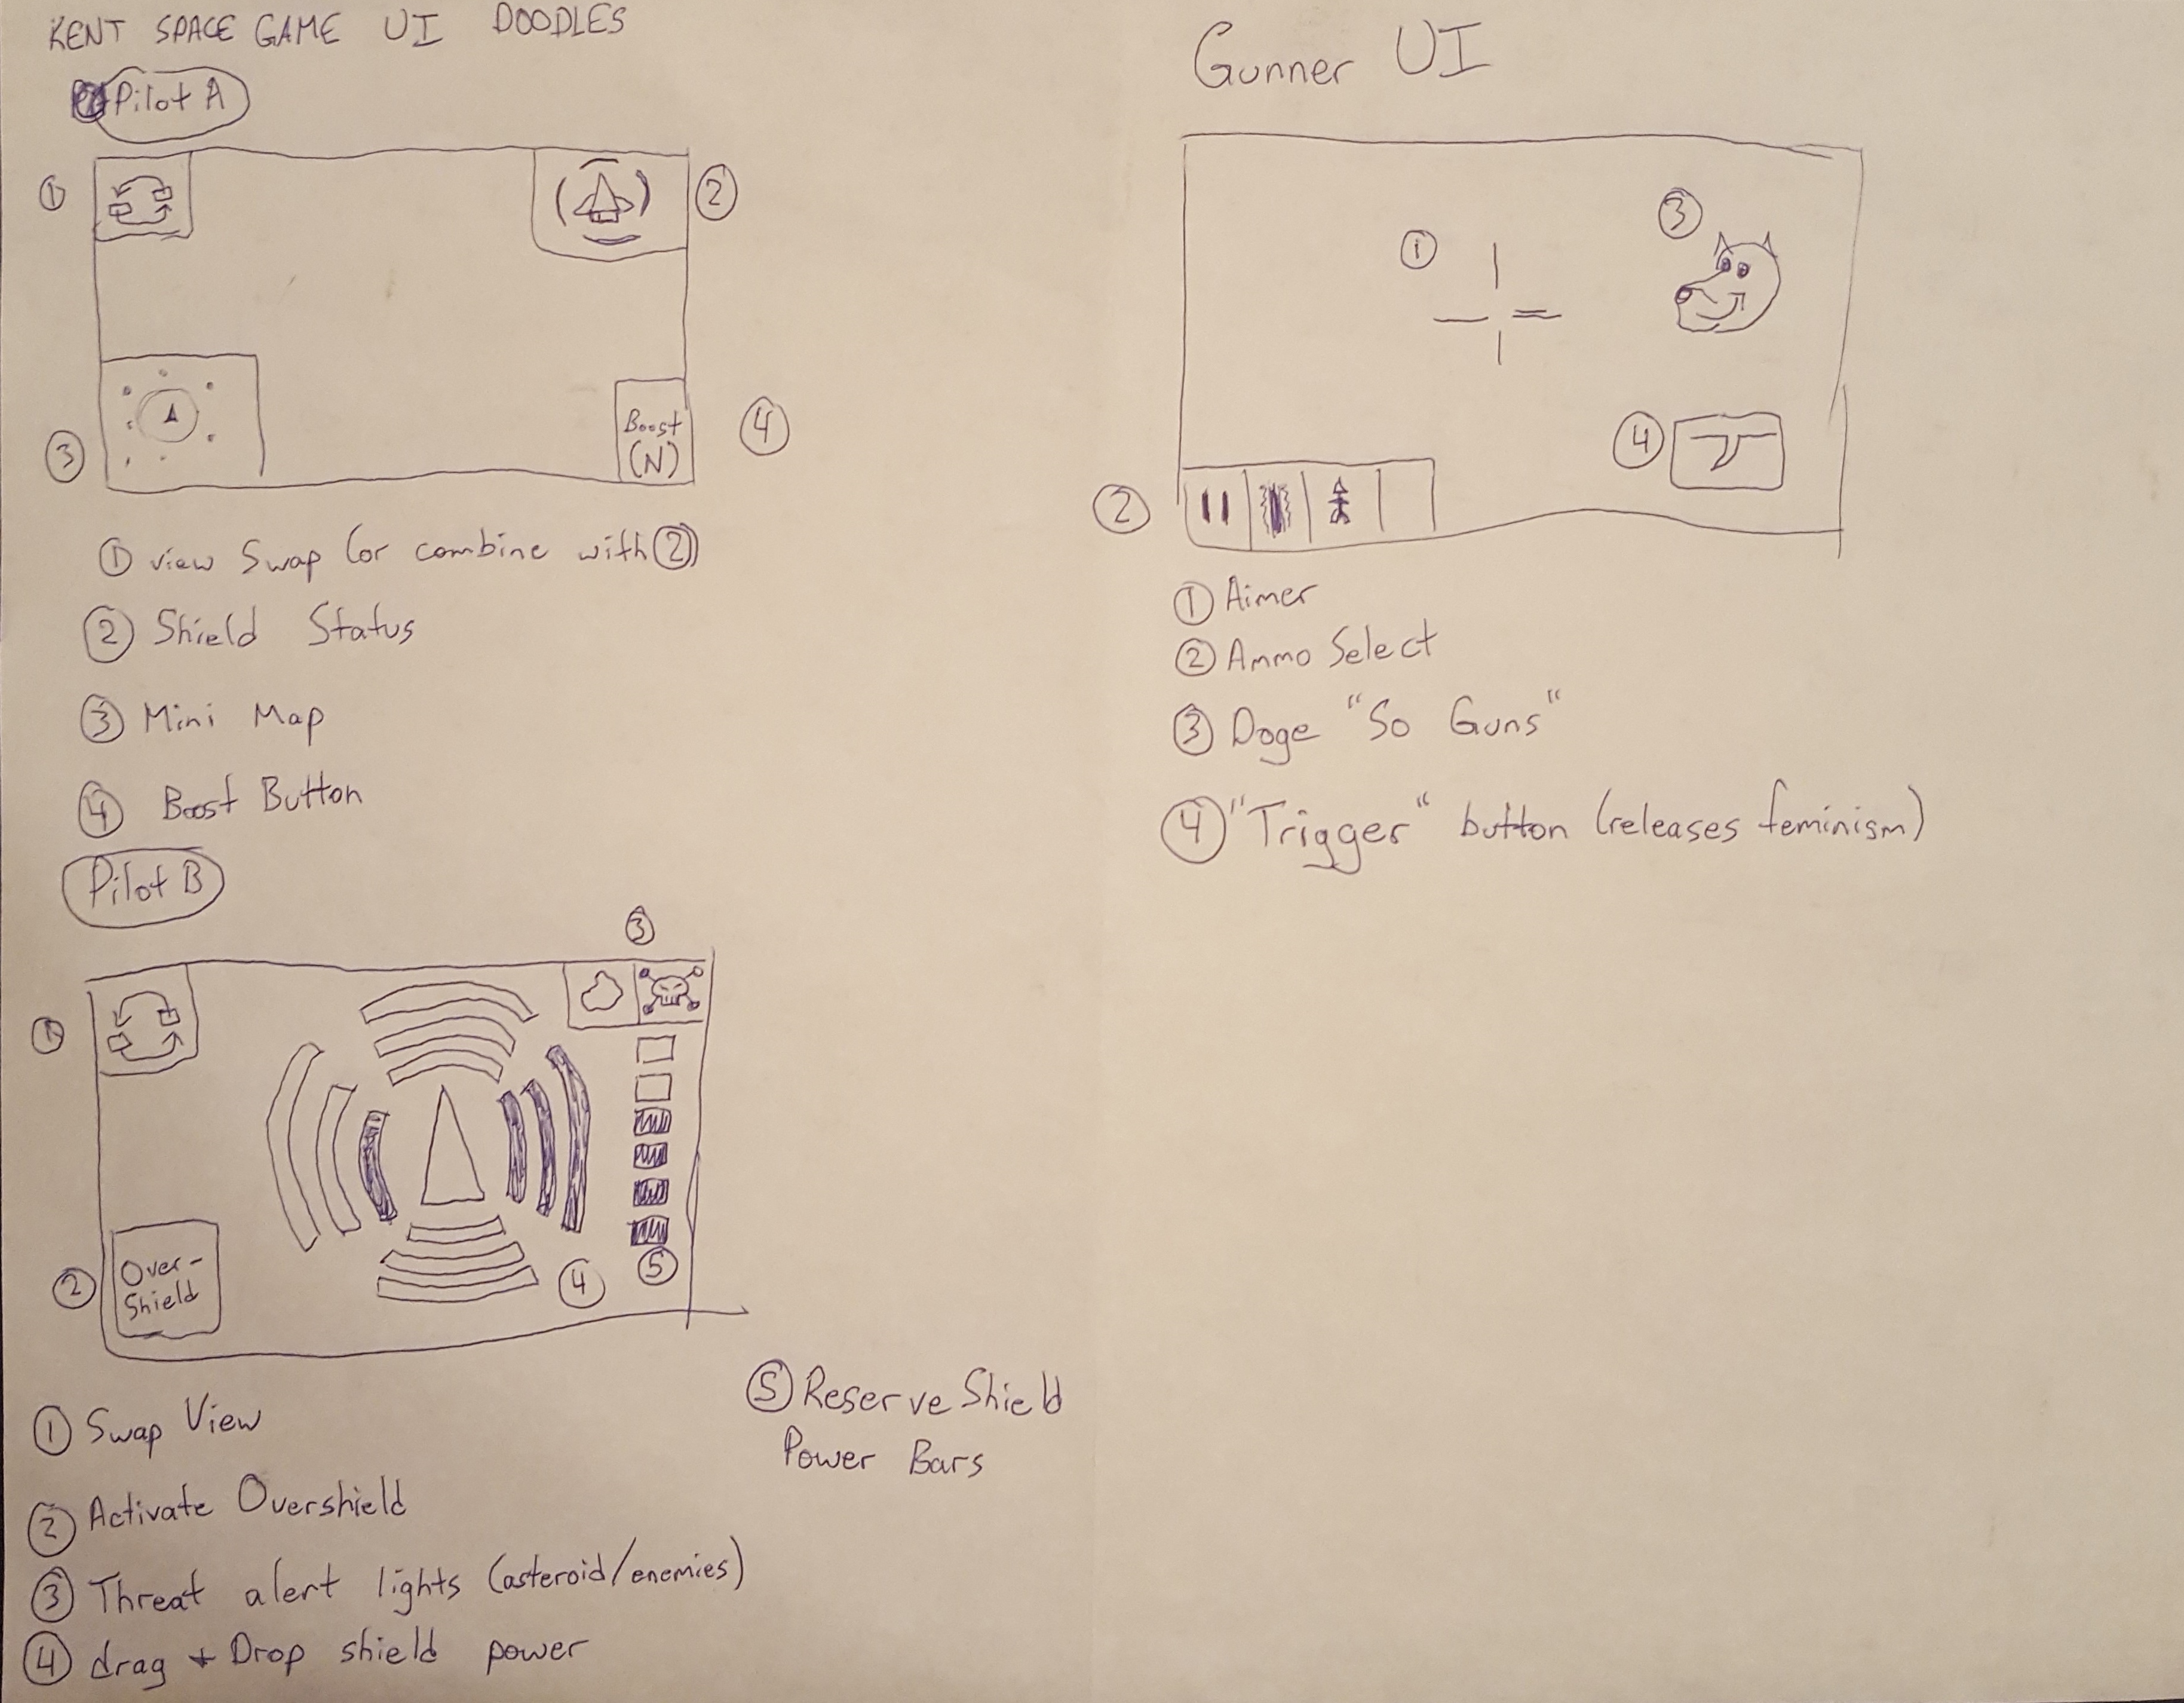 KENT SPACE GAME UI DOODLES
Pilot A
1
2
3
4
Boost
(N)
1 view Swap (or combine with 2)
2 Shield Status
3 Mini Map
4 Boost Button
Pilot B
3
1
2
Over-
Shield
4
5
1 Swap View
2 Activate Overshield
3 Threat alert lights (asteroid/enemies)
4 drag + Drop shield power
5 Reserve Shield
Power Bars
Gunner UI
1
3
4
2
1 Aimer
2 Ammo Select
3 Doge "So Guns"
4 "Trigger" button (releases feminism)